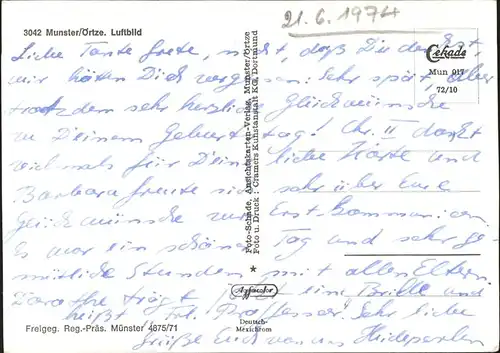 21.6.1974
3042 Munster/Örtze. Luftbild
Cekade
Mun 017
72/10
Liebe Tante Grete, nicht, daß Du denkst,
wir hätten Dich vergessen. Sehr spät, aber
trotzdem sehr herzliche Glückwünsche
zu Deinem Geburtstag! Chr. II dankt
vielmals für Deine liebe Karte und
Barbara freute sich sehr über Eure
Glückwünsche zur Erst-Kommunion.
Es war ein schöner Tag und sehr ge-
mütliche Stunden mit allen Eltern.
Dorothe trägt jetzt eine Brille und
heißt Professor. Sehr liebe
Grüße Euch von uns Heidjerlen
Foto-Schade, Ansichtskarten-Verlag, Munster/Örtze
Foto u. Druck: Cramers Kunstanstalt KG Dortmund
Agfacolor
Deutsch-
Mexichrom
Freigeg. Reg.-Präs. Münster 4875/71